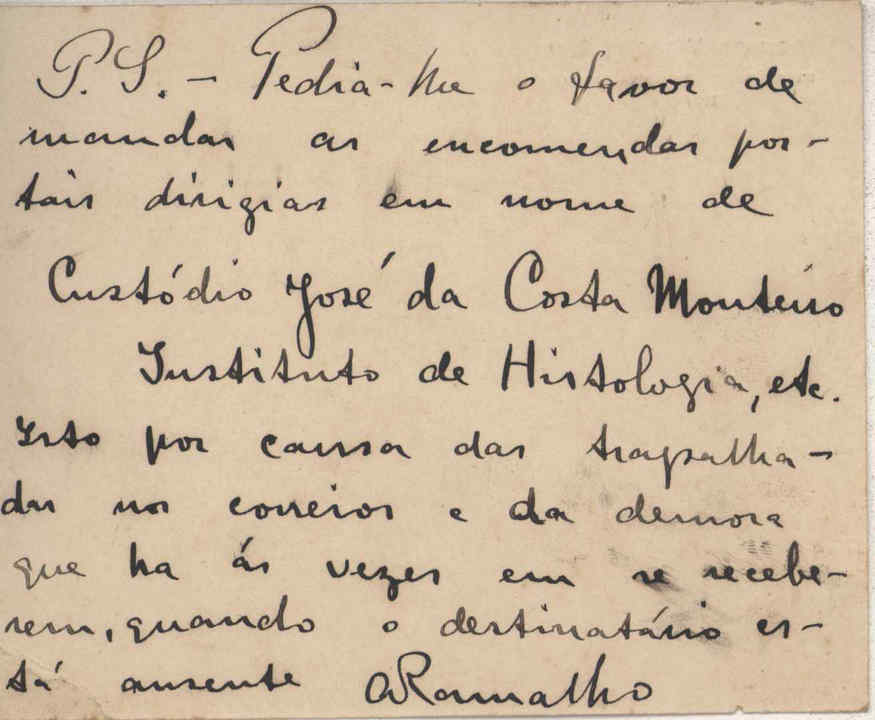 P.S. - Pedia-lhe o favor de
mandar as encomendas pos-
tais dirigias em nome de
Custódio José da Costa Monteiro
Instituto de Histologia, etc.
Isto por causa das trapalha-
das nos correios e da demora
que ha ás vezes em se recebe-
rem, quando o destinatário es-
tá ausente ARamalho